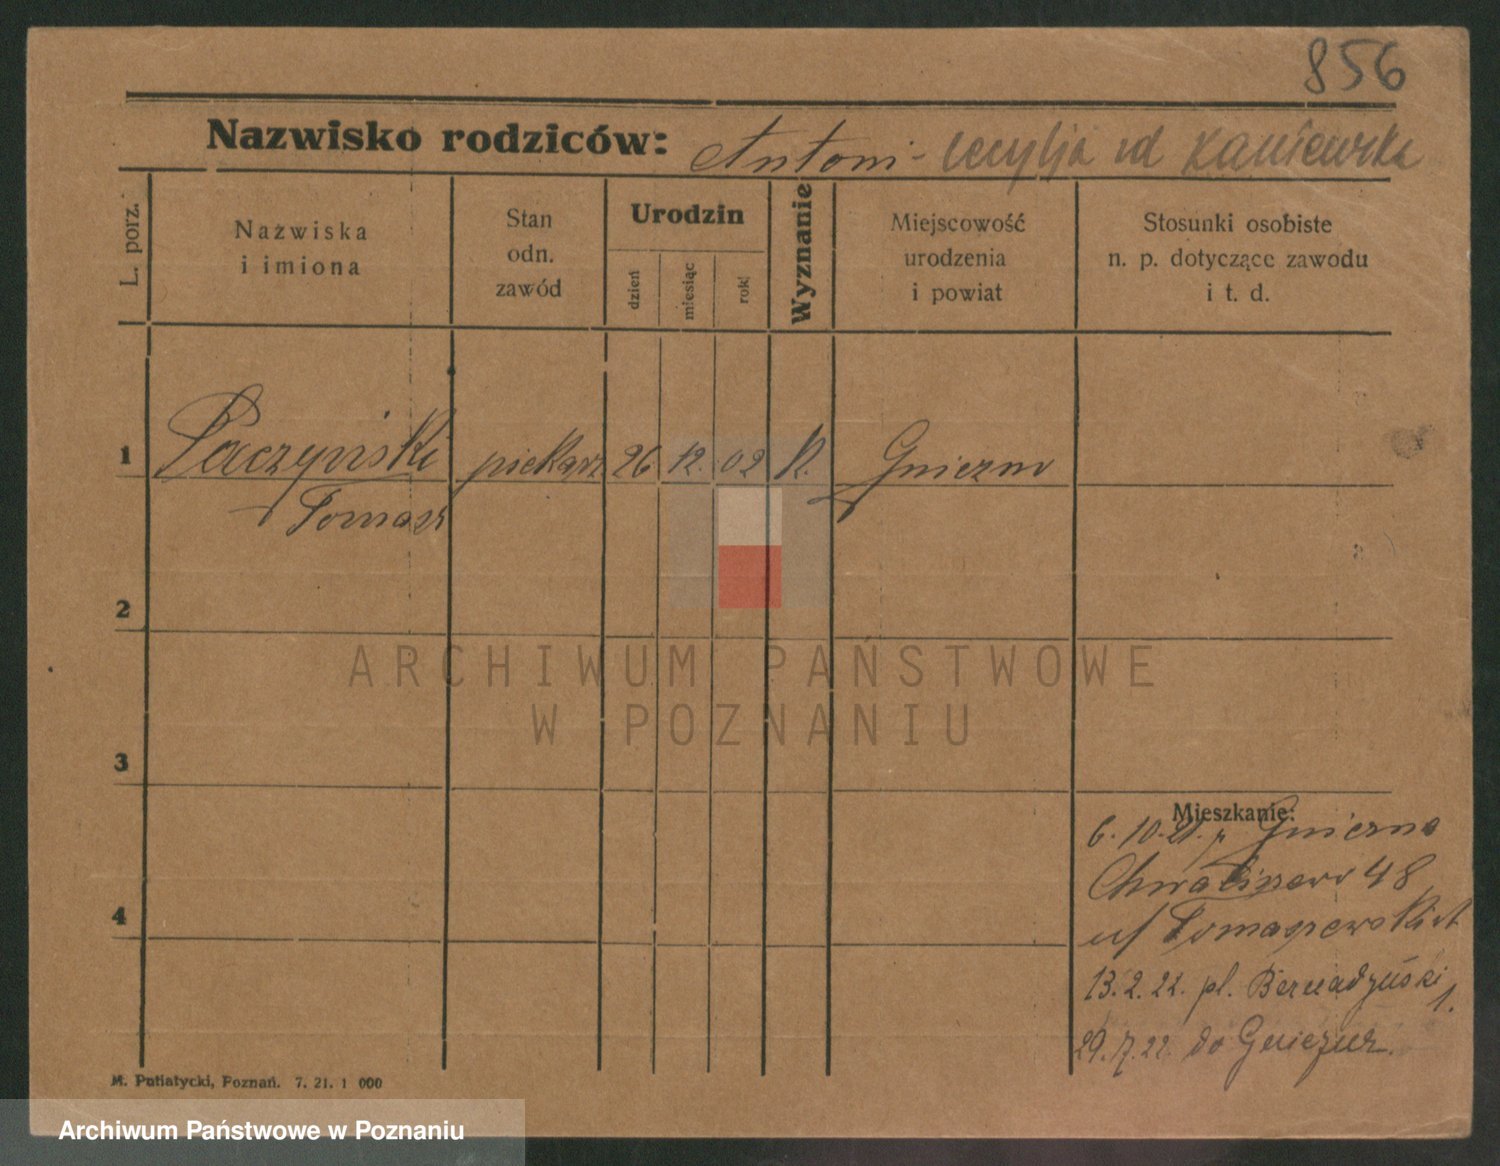 856
Nazwisko rodziców: Antoni - Cecylja
L. porz.
Nazwiska
i imiona
Stan
odn.
zawód
Urodzin
dzień
miesiąc
rok
Wyznanie
Miejscowość
urodzenia
i powiat
Stosunki osobiste
n. p. dotyczące zawodu
i t. d.
1 Paczyński piekarz 26 12. 02 Gniezno
Tomasz
2
ARCHIWUM PAŃSTWOWE
W POZNANIU
3
4
Mieszkanie:
6. 10. 21. Gniezno
48
u/
13. 2. 22. pl. 1.
29. 7. 22. do
M. Putiatycki, Poznań. 7. 21. 1 000
Archiwum Państwowe w Poznaniu